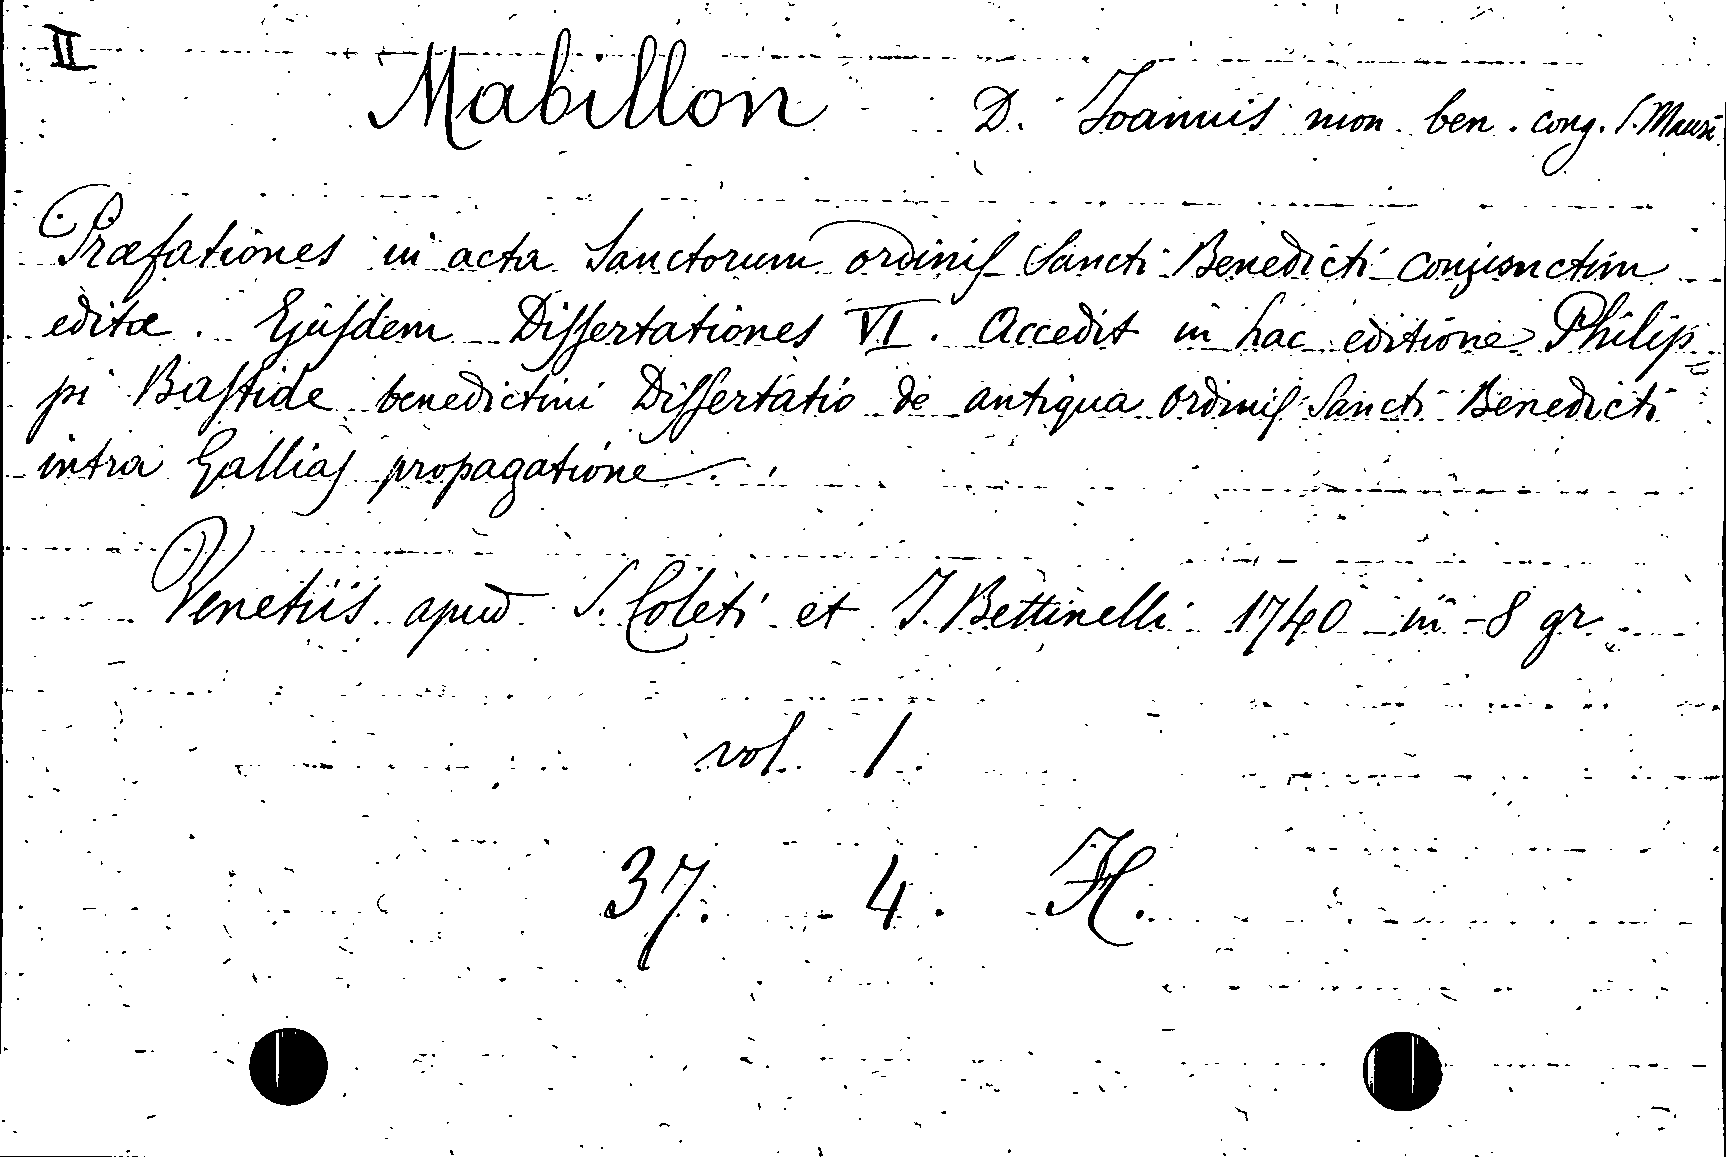 II
Mabillon D. Joannis mon. ben. cong. S. Mauri
Præfationes in acta Sanctorum ordinis Sancti Benedicti conjunctim
editæ. Ejusdem Dissertationes VI. Accedit in hac editione Philip=
pi Bastide benedictini Dissertatio de antiqua ordinis Sancti Benedicti
intra Gallias propagatione.
Venetiis apud S. Coleti et J. Bettinelli 1740 in-8 gr.
vol. 1.
37. 4. H.